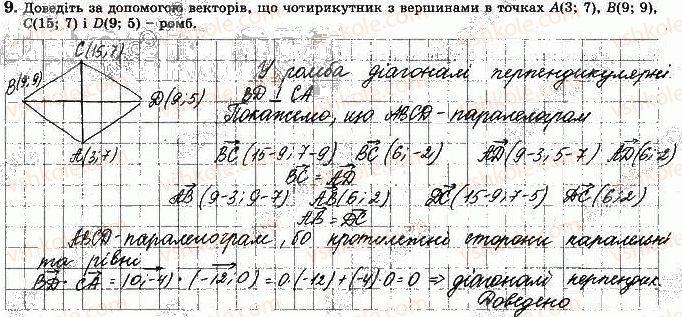 9. Доведіть за допомогою векторів, що чотирикутник з вершинами в точках A(3; 7), B(9; 9),
C(15; 7) і D(9; 5) – ромб.
C(15,7)
B(9,9)
D(9,5)
A(3,7)
У ромба діагоналі перпендикулярні
BD ⊥ CA
Покажемо, що ABCD - паралелограм
BC (15-9; 7-9) BC (6; -2) AD (9-3; 5-7) AD (6;-2)
BC = AD
AB (9-3; 9-7) AB (6; 2) DC (15-9; 7-5) DC (6;2)
AB = DC
ABCD - паралелограм, бо протилежні сторони паралельні
та рівні
BD · CA = (0;-4) · (-12; 0) = 0·(-12) + (-4)·0 = 0 ⇒ діагоналі перпендик.
Доведено